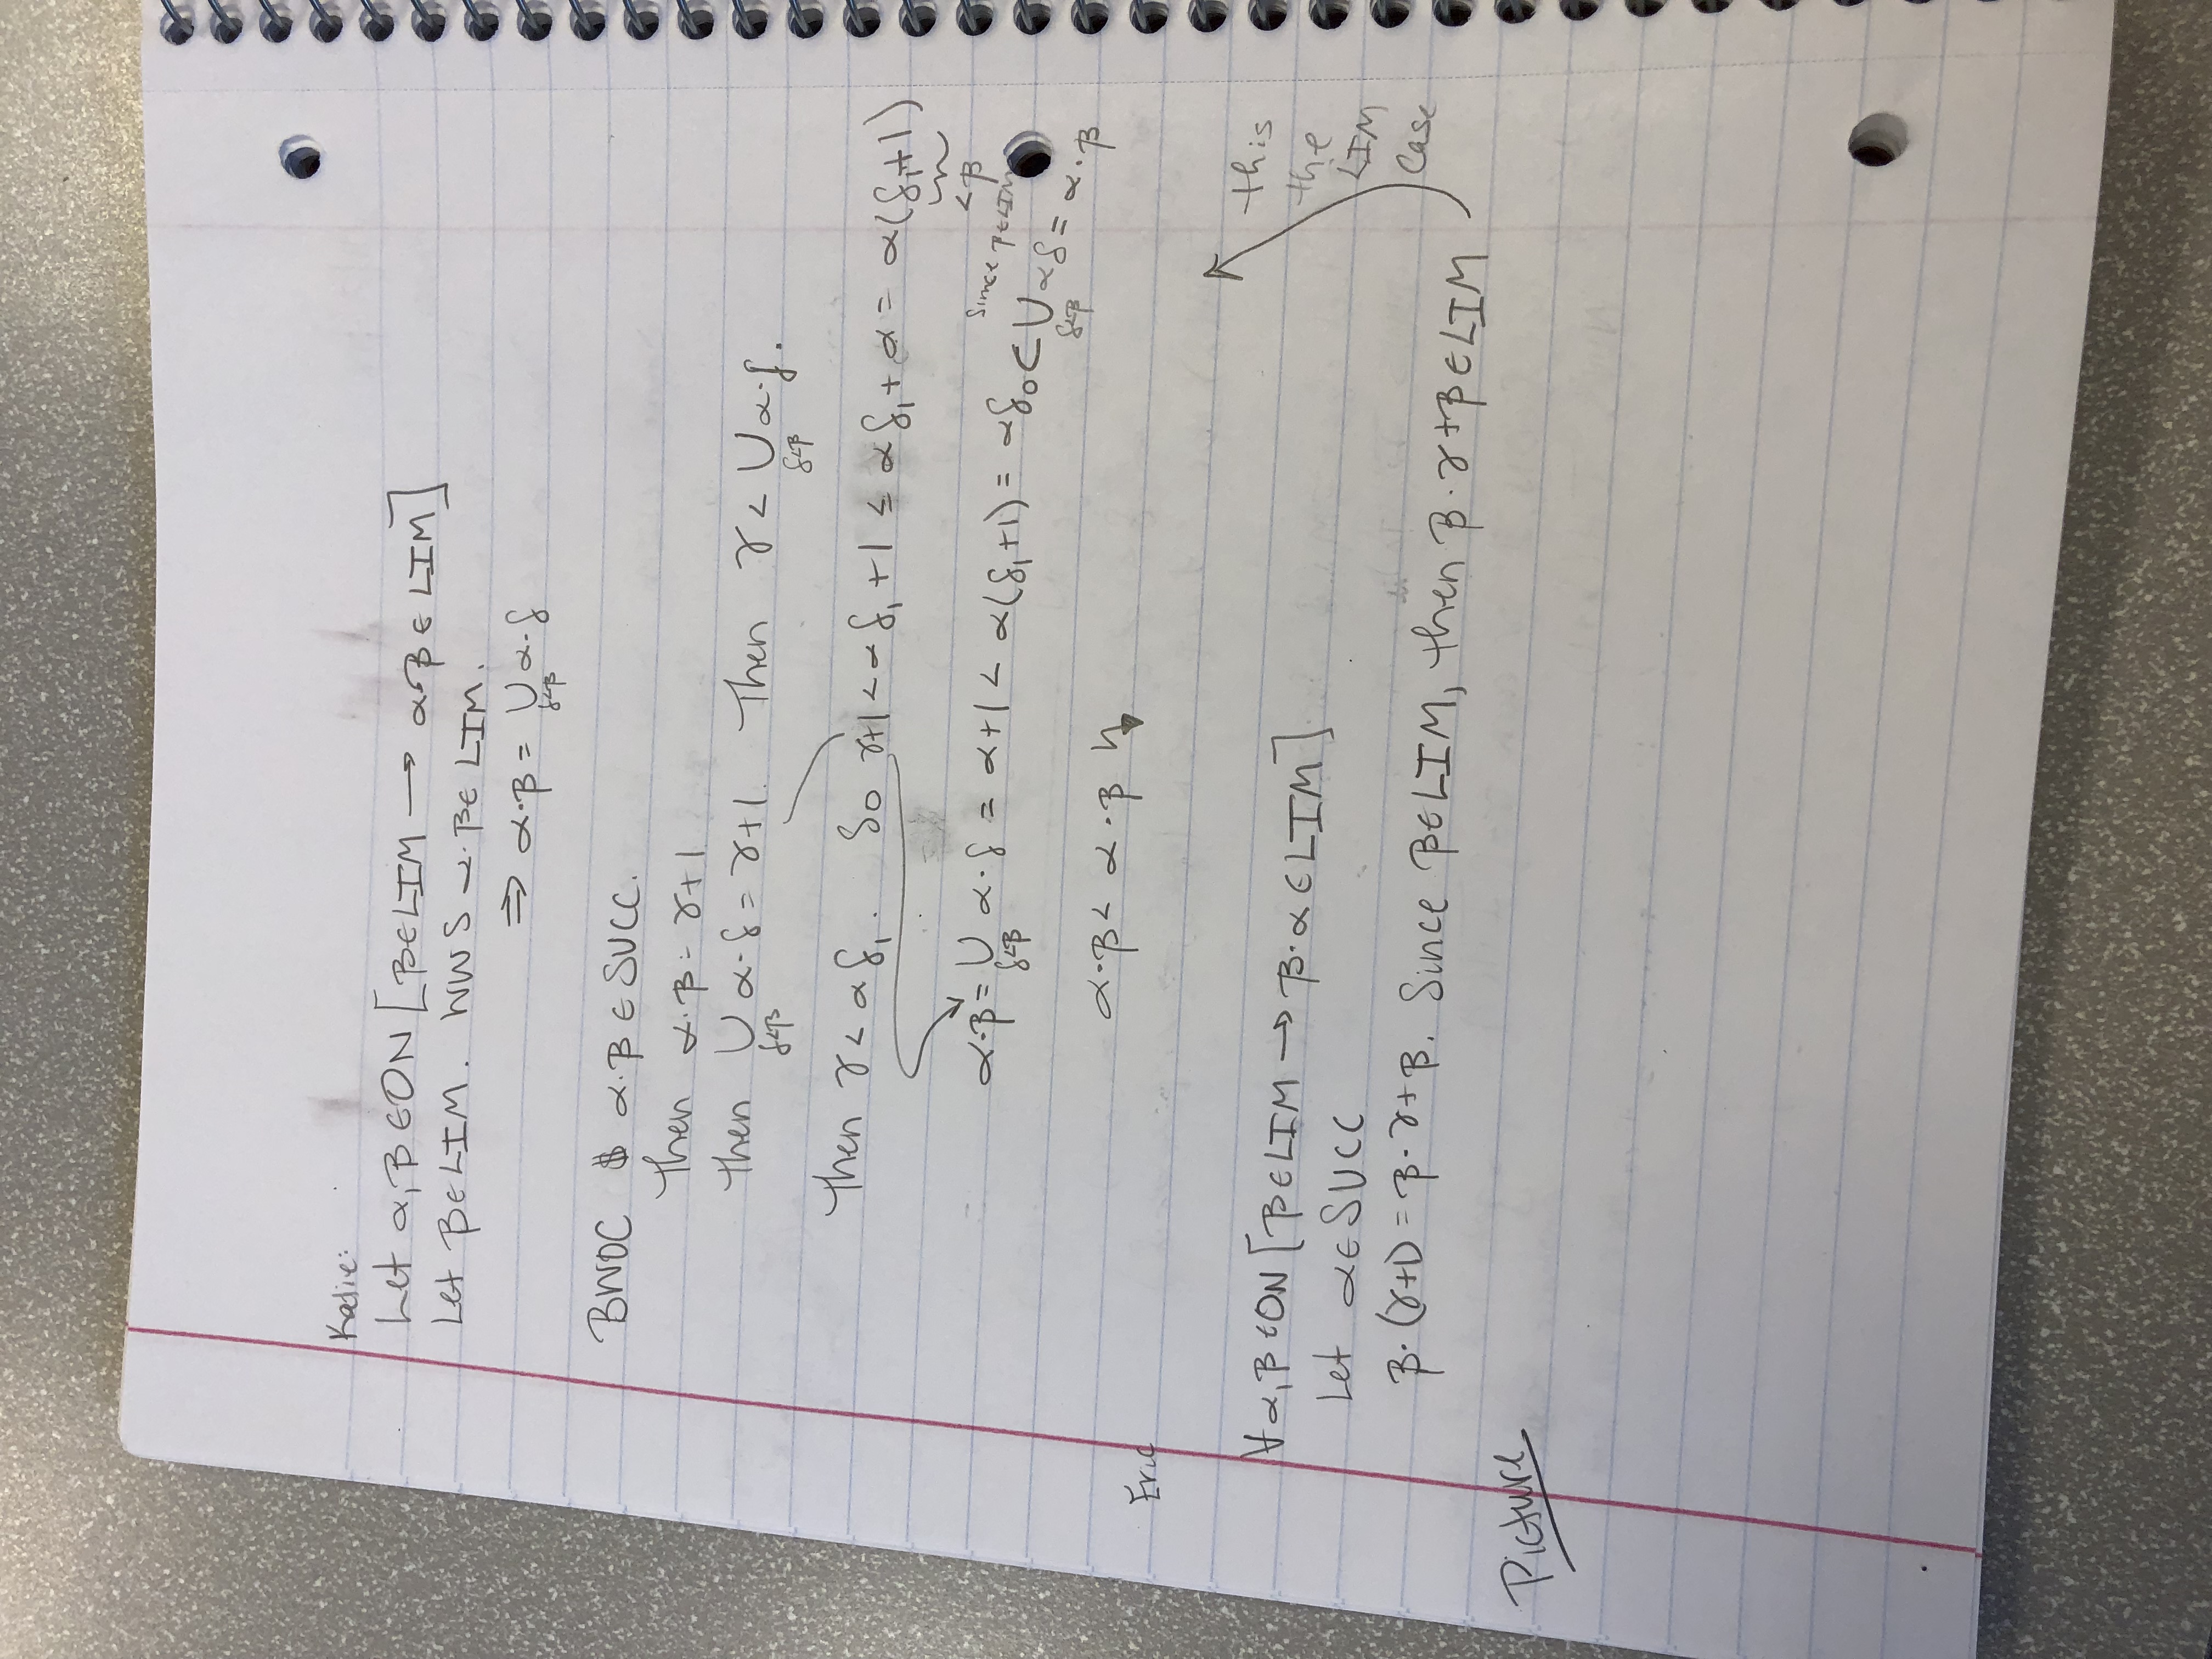 Katie:
Let α, β ∈ ON [β ∈ LIM → α·β ∈ LIM]
Let β ∈ LIM. WWS α·β ∈ LIM.
⇒ α·β = ∪ α·δ
δ<β
BWOC $ α·β ∈ SUCC.
Then α·β = γ+1
Then ∪ α·δ = γ+1. Then γ < ∪ α·δ.
δ<β δ<β
Then γ < αδ₁. So γ+1 < αδ₁ + 1 ≤ αδ₁ + α = α(δ₁+1)
< β
since β ∈ LIM
α·β = ∪ α·δ = α+1 < α(δ₁+1) = αδ₀ ⊂ ∪ αδ = α·β
δ<β δ<β
α·β < α·β ↯
Eric
∀α, β ∈ ON [β ∈ LIM → β·α ∈ LIM]
Let α ∈ SUCC
β·(γ+1) = β·γ+β. Since β ∈ LIM, then β·γ+β ∈ LIM
this
the
LIM
Case
Picture